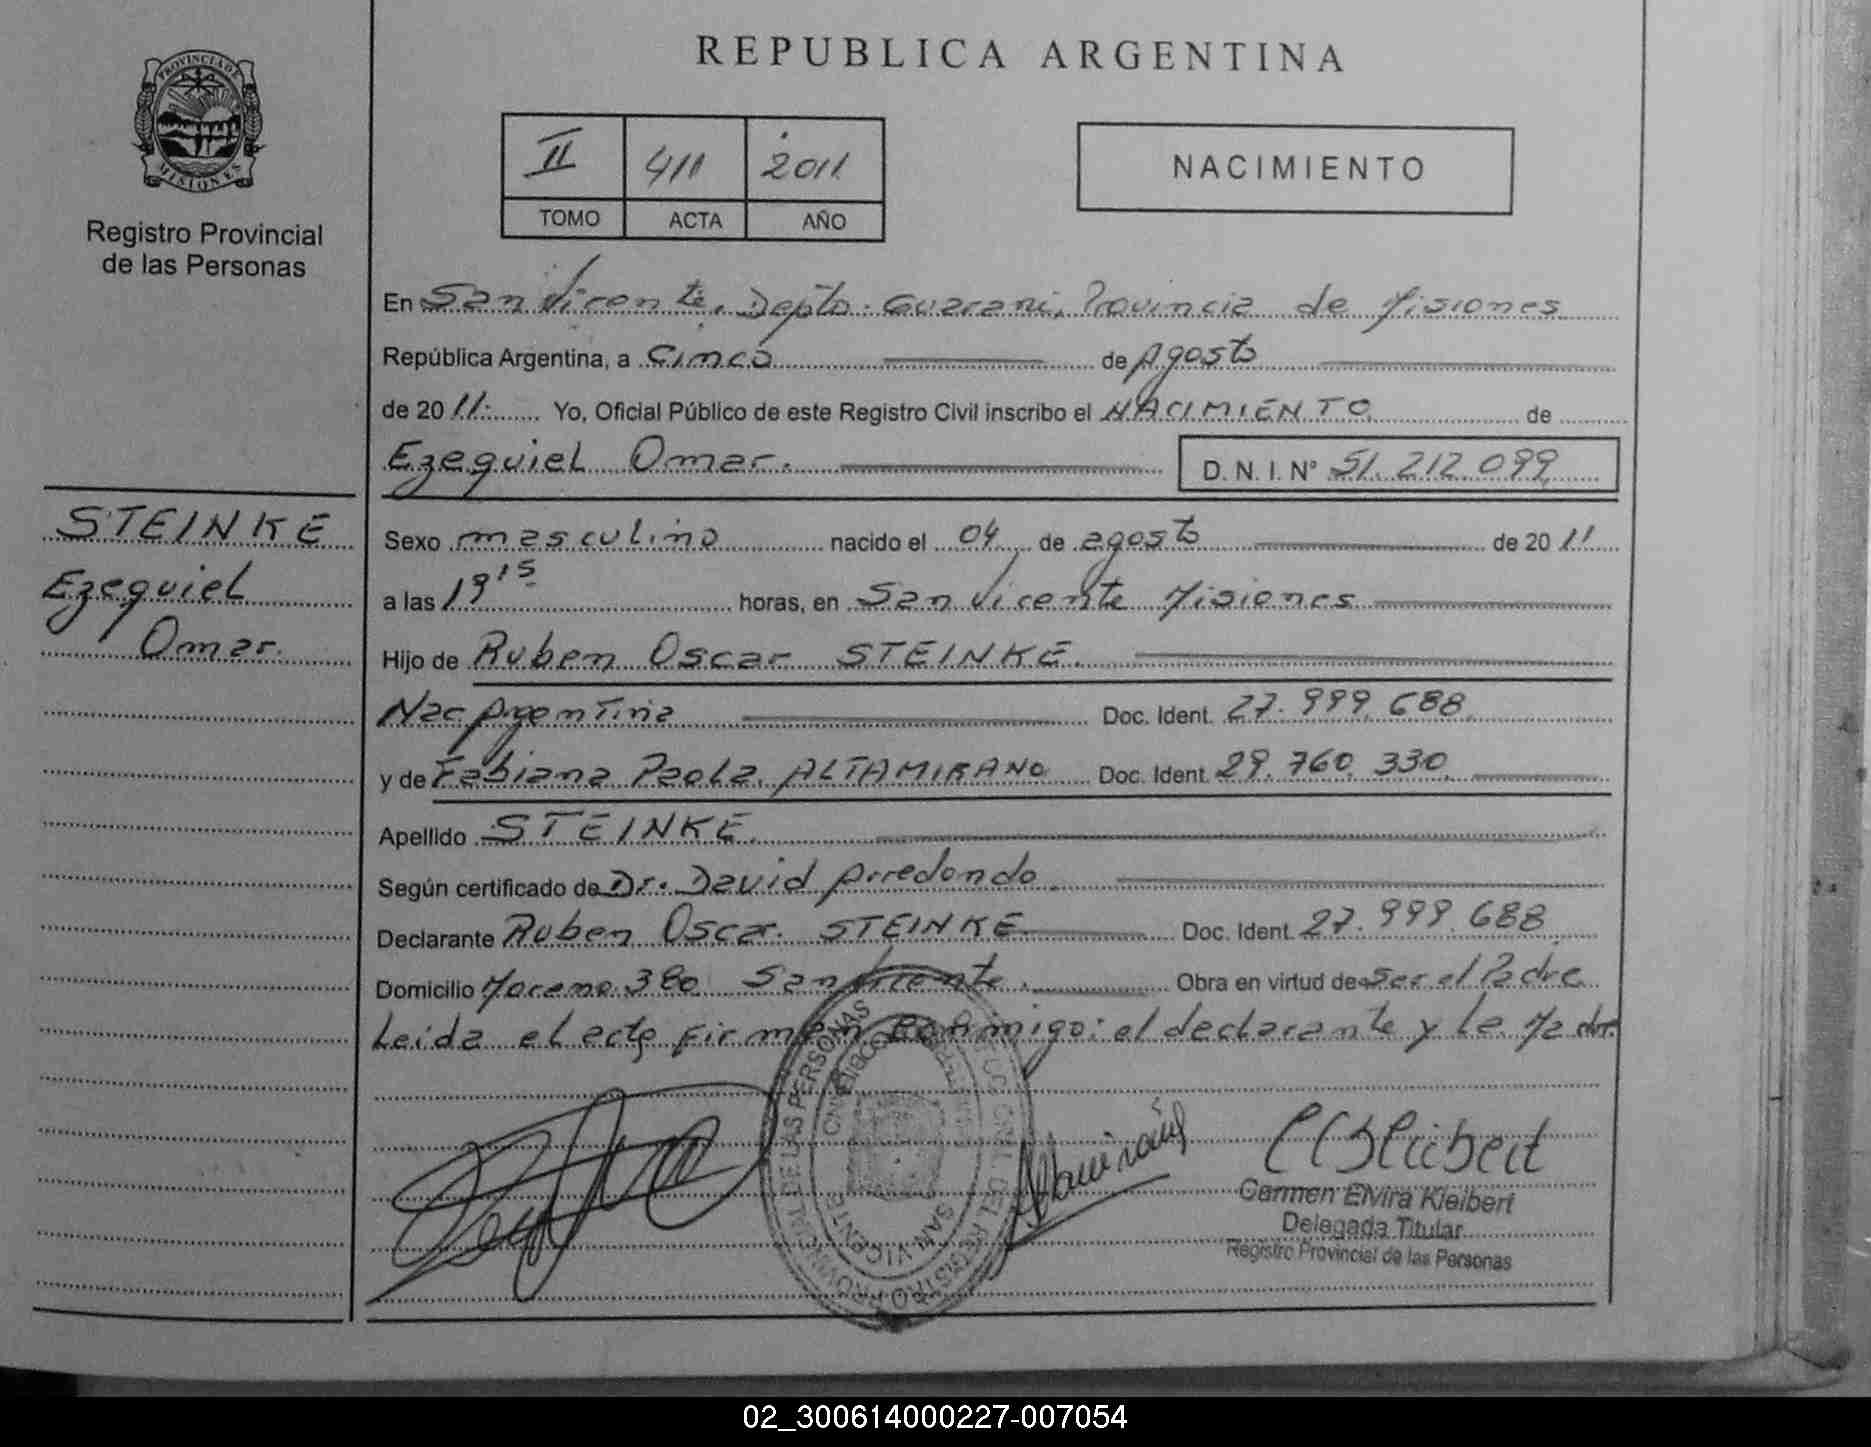 REPUBLICA ARGENTINA
PROVINCIA DE
MISIONES
Registro Provincial
de las Personas
II 411 2011
TOMO ACTA AÑO
NACIMIENTO
En San Vicente, Depto. Guarani, Provincia de Misiones
República Argentina, a Cinco de Agosto
de 20 11. Yo, Oficial Público de este Registro Civil inscribo el NACIMIENTO de
Ezequiel Omar. D. N. I. N° 51.212.099
STEINKE
Ezequiel
Omar.
Sexo masculino nacido el 04 de agosto de 20 11
a las 19 15 horas, en San Vicente Misiones
Hijo de Ruben Oscar STEINKE.
Nac Argentina Doc. Ident. 27.999.688
y de Fabiana Paola ALTAMIRANO Doc. Ident. 29.760.330
Apellido STEINKE.
Según certificado de Dr. David Arredondo
Declarante Ruben Oscar STEINKE Doc. Ident. 27.999.688
Domicilio Moreno 380 San Vicente. Obra en virtud de Ser el Padre
Leida el acta firman conmigo: el declarante y la Madre
REGISTRO PROVINCIAL DE LAS PERSONAS
SAN VICENTE
Carmen Elvira Kleibert
Delegada Titular
Registro Provincial de las Personas
02_300614000227-007054